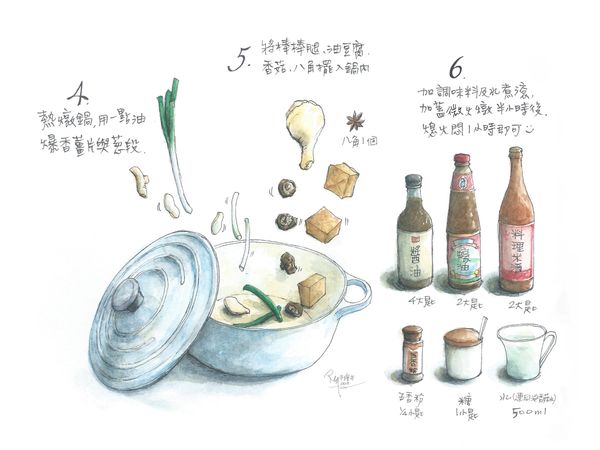 4.
熱燉鍋,用一點油
爆香薑片與蔥段.
5.
將棒棒腿、油豆腐.
香菇、八角擺入鍋內
八角1個
6.
加調味料及水煮滾,
加蓋微火燉半小時後.
熄火悶1小時即可
醬油
蠔油
料理米酒
4大匙
2大匙
2大匙
五香粉
¼小匙
糖
1小匙
500ml